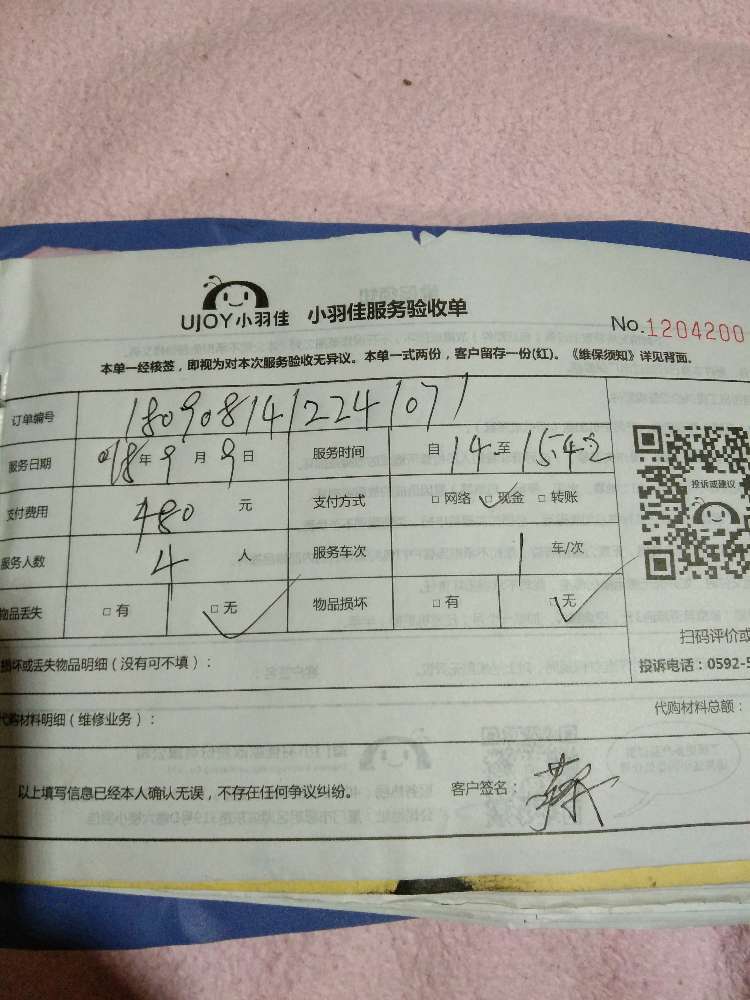 UJOY小羽佳 小羽佳服务验收单
No.1204200
本单一经核签，即视为对本次服务验收无异议。本单一式两份，客户留存一份(红)。《维保须知》详见背面。
订单编号 1809081412241071
服务日期 018年9月9日 服务时间 自14至15:42
支付费用 480元 支付方式 □网络 □现金 □转账
服务人数 4人 服务车次 1车/次
物品丢失 □有 □无 物品损坏 □有 □无
投诉或建议
扫码评价或
损坏或丢失物品明细（没有可不填）： 投诉电话：0592-5
代购材料明细（维修业务）： 代购材料总额：
以上填写信息已经本人确认无误，不存在任何争议纠纷。 客户签名：